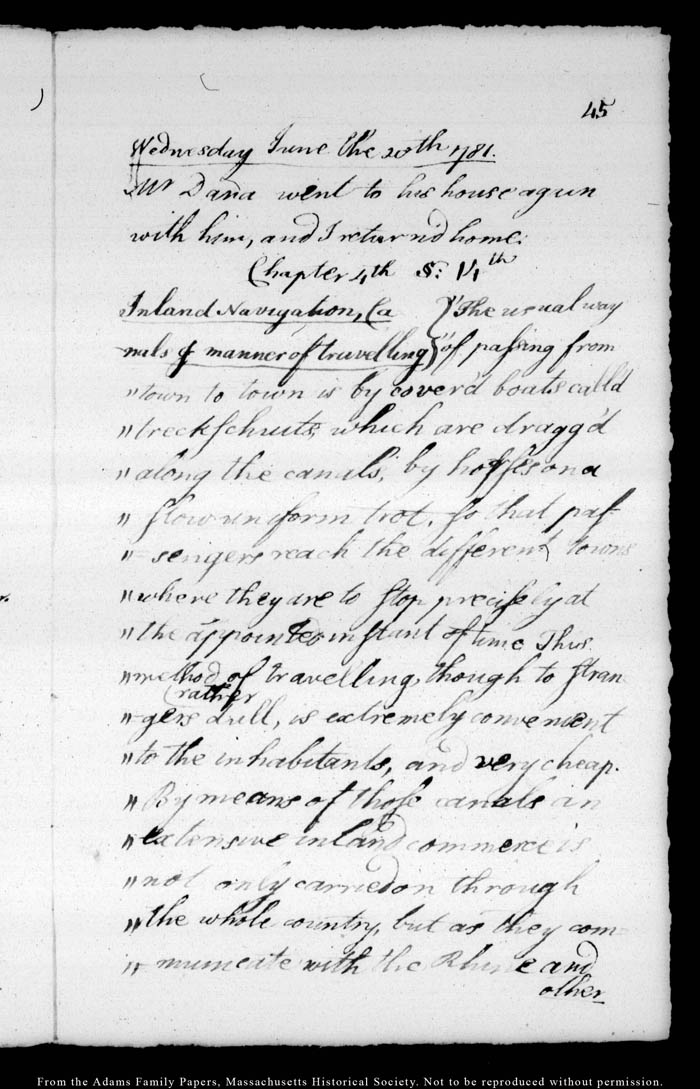 45
Wednesday June the 20th 1781.
Mr Dana went to his house again
with him, and I return'd home.
Chapter 4th S: 14th
Inland Navigation, Ca } "The usual way
nals & manner of travelling } "of passing from
"town to town is by cover'd boats call'd
"treckschuits, which are dragg'd
"along the canals, by horses on a
"slow uniform trot, so that pas-
"sengers reach the different towns
"where they are to stop precisely at
"the appointed instant of time This
"method of travelling, though to stran
rather
"gers dull, is extremely convenient
"to the inhabitants, and very cheap.
"By means of those canals an
"extensive inland commerce is
"not only carried on through
"the whole country, but as they com-
"municate with the Rhine and
other
From the Adams Family Papers, Massachusetts Historical Society. Not to be reproduced without permission.